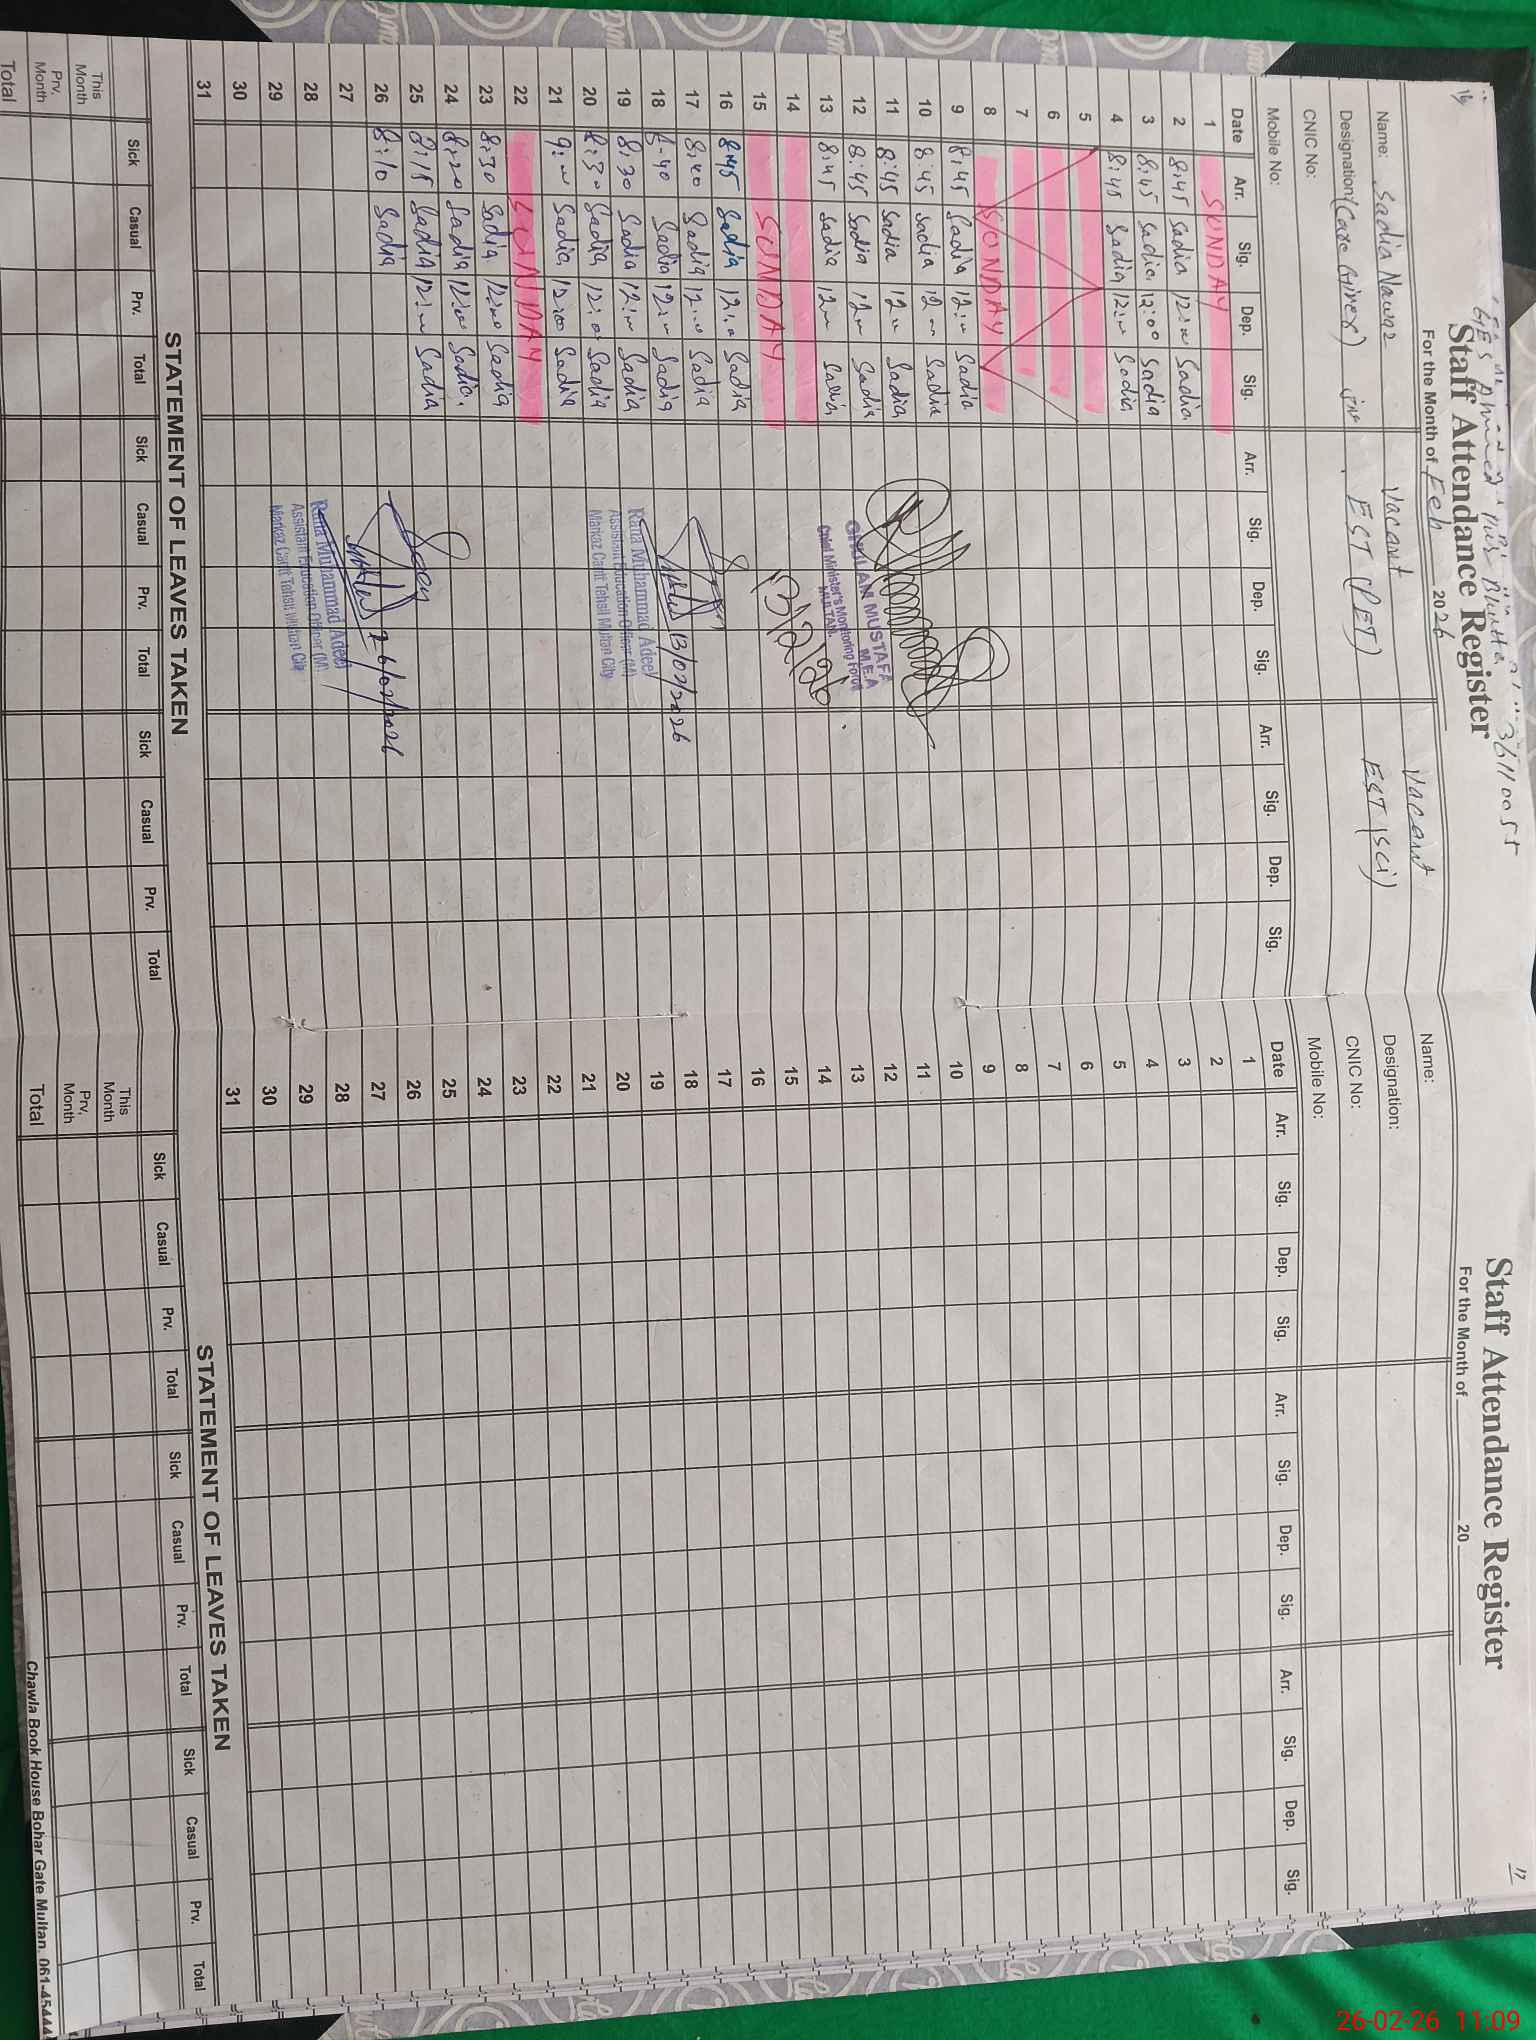 16
GES Ahmed Pur Bhutta 36110055
Staff Attendance Register
For the Month of Feb 2026
Name: Sadia Nawaz
Vacant
Vacant
Designation: (Care Giver)
EST (PET)
EST (SCi)
CNIC No:
Mobile No:
Date Arr. Sig. Dep. Sig. Arr. Sig. Dep. Sig. Arr. Sig. Dep. Sig.
1 SUNDAY
2 8:45 Sadia 12:00 Sadia
3 8:45 Sadia 12:00 Sadia
4 8:45 Sadia 12:00 Sadia
5
6
7
8 SUNDAY
9 8:45 Sadia 12:00 Sadia
10 8:45 Sadia 12 Sadia
11 8:45 Sadia 12 Sadia
12 8:45 Sadia 12 Sadia
13 8:45 Sadia 12 Sadia
14
15 SUNDAY
16 8:45 Sadia 12:00 Sadia
17 8:40 Sadia 12:00 Sadia
18 8-40 Sadia 12:00 Sadia
19 8:30 Sadia 12:00 Sadia
20 8:30 Sadia 12:00 Sadia
21 9:00 Sadia 12:00 Sadia
22 SUNDAY
23 8:30 Sadia 12:00 Sadia
24 8:20 Sadia 12:00 Sadia
25 8:15 Sadia 12:00 Sadia
26 8:10 Sadia
27
28
29
30
31
GHULAM MUSTAFA
M.E.A
Chief Minister's Monitoring Force
MULTAN.
13/2/26
13/02/2026
Rana Muhammad Adeel
Assistant Education Officer (M)
Markaz Cantt Tehsil Multan City
26/02/2026
Rana Muhammad Adeel
Assistant Education Officer (M)
Markaz Cantt Tehsil Multan City
STATEMENT OF LEAVES TAKEN
Sick Casual Prv. Total Sick Casual Prv. Total Sick Casual Prv. Total
This Month
Prv. Month
Total
17
Staff Attendance Register
For the Month of 20
Name:
Designation:
CNIC No:
Mobile No:
Date Arr. Sig. Dep. Sig. Arr. Sig. Dep. Sig. Arr. Sig. Dep. Sig.
1
2
3
4
5
6
7
8
9
10
11
12
13
14
15
16
17
18
19
20
21
22
23
24
25
26
27
28
29
30
31
STATEMENT OF LEAVES TAKEN
Sick Casual Prv. Total Sick Casual Prv. Total Sick Casual Prv. Total
This Month
Prv. Month
Total
Chawla Book House Bohar Gate Multan. 061-45444
26-02-26 11:09